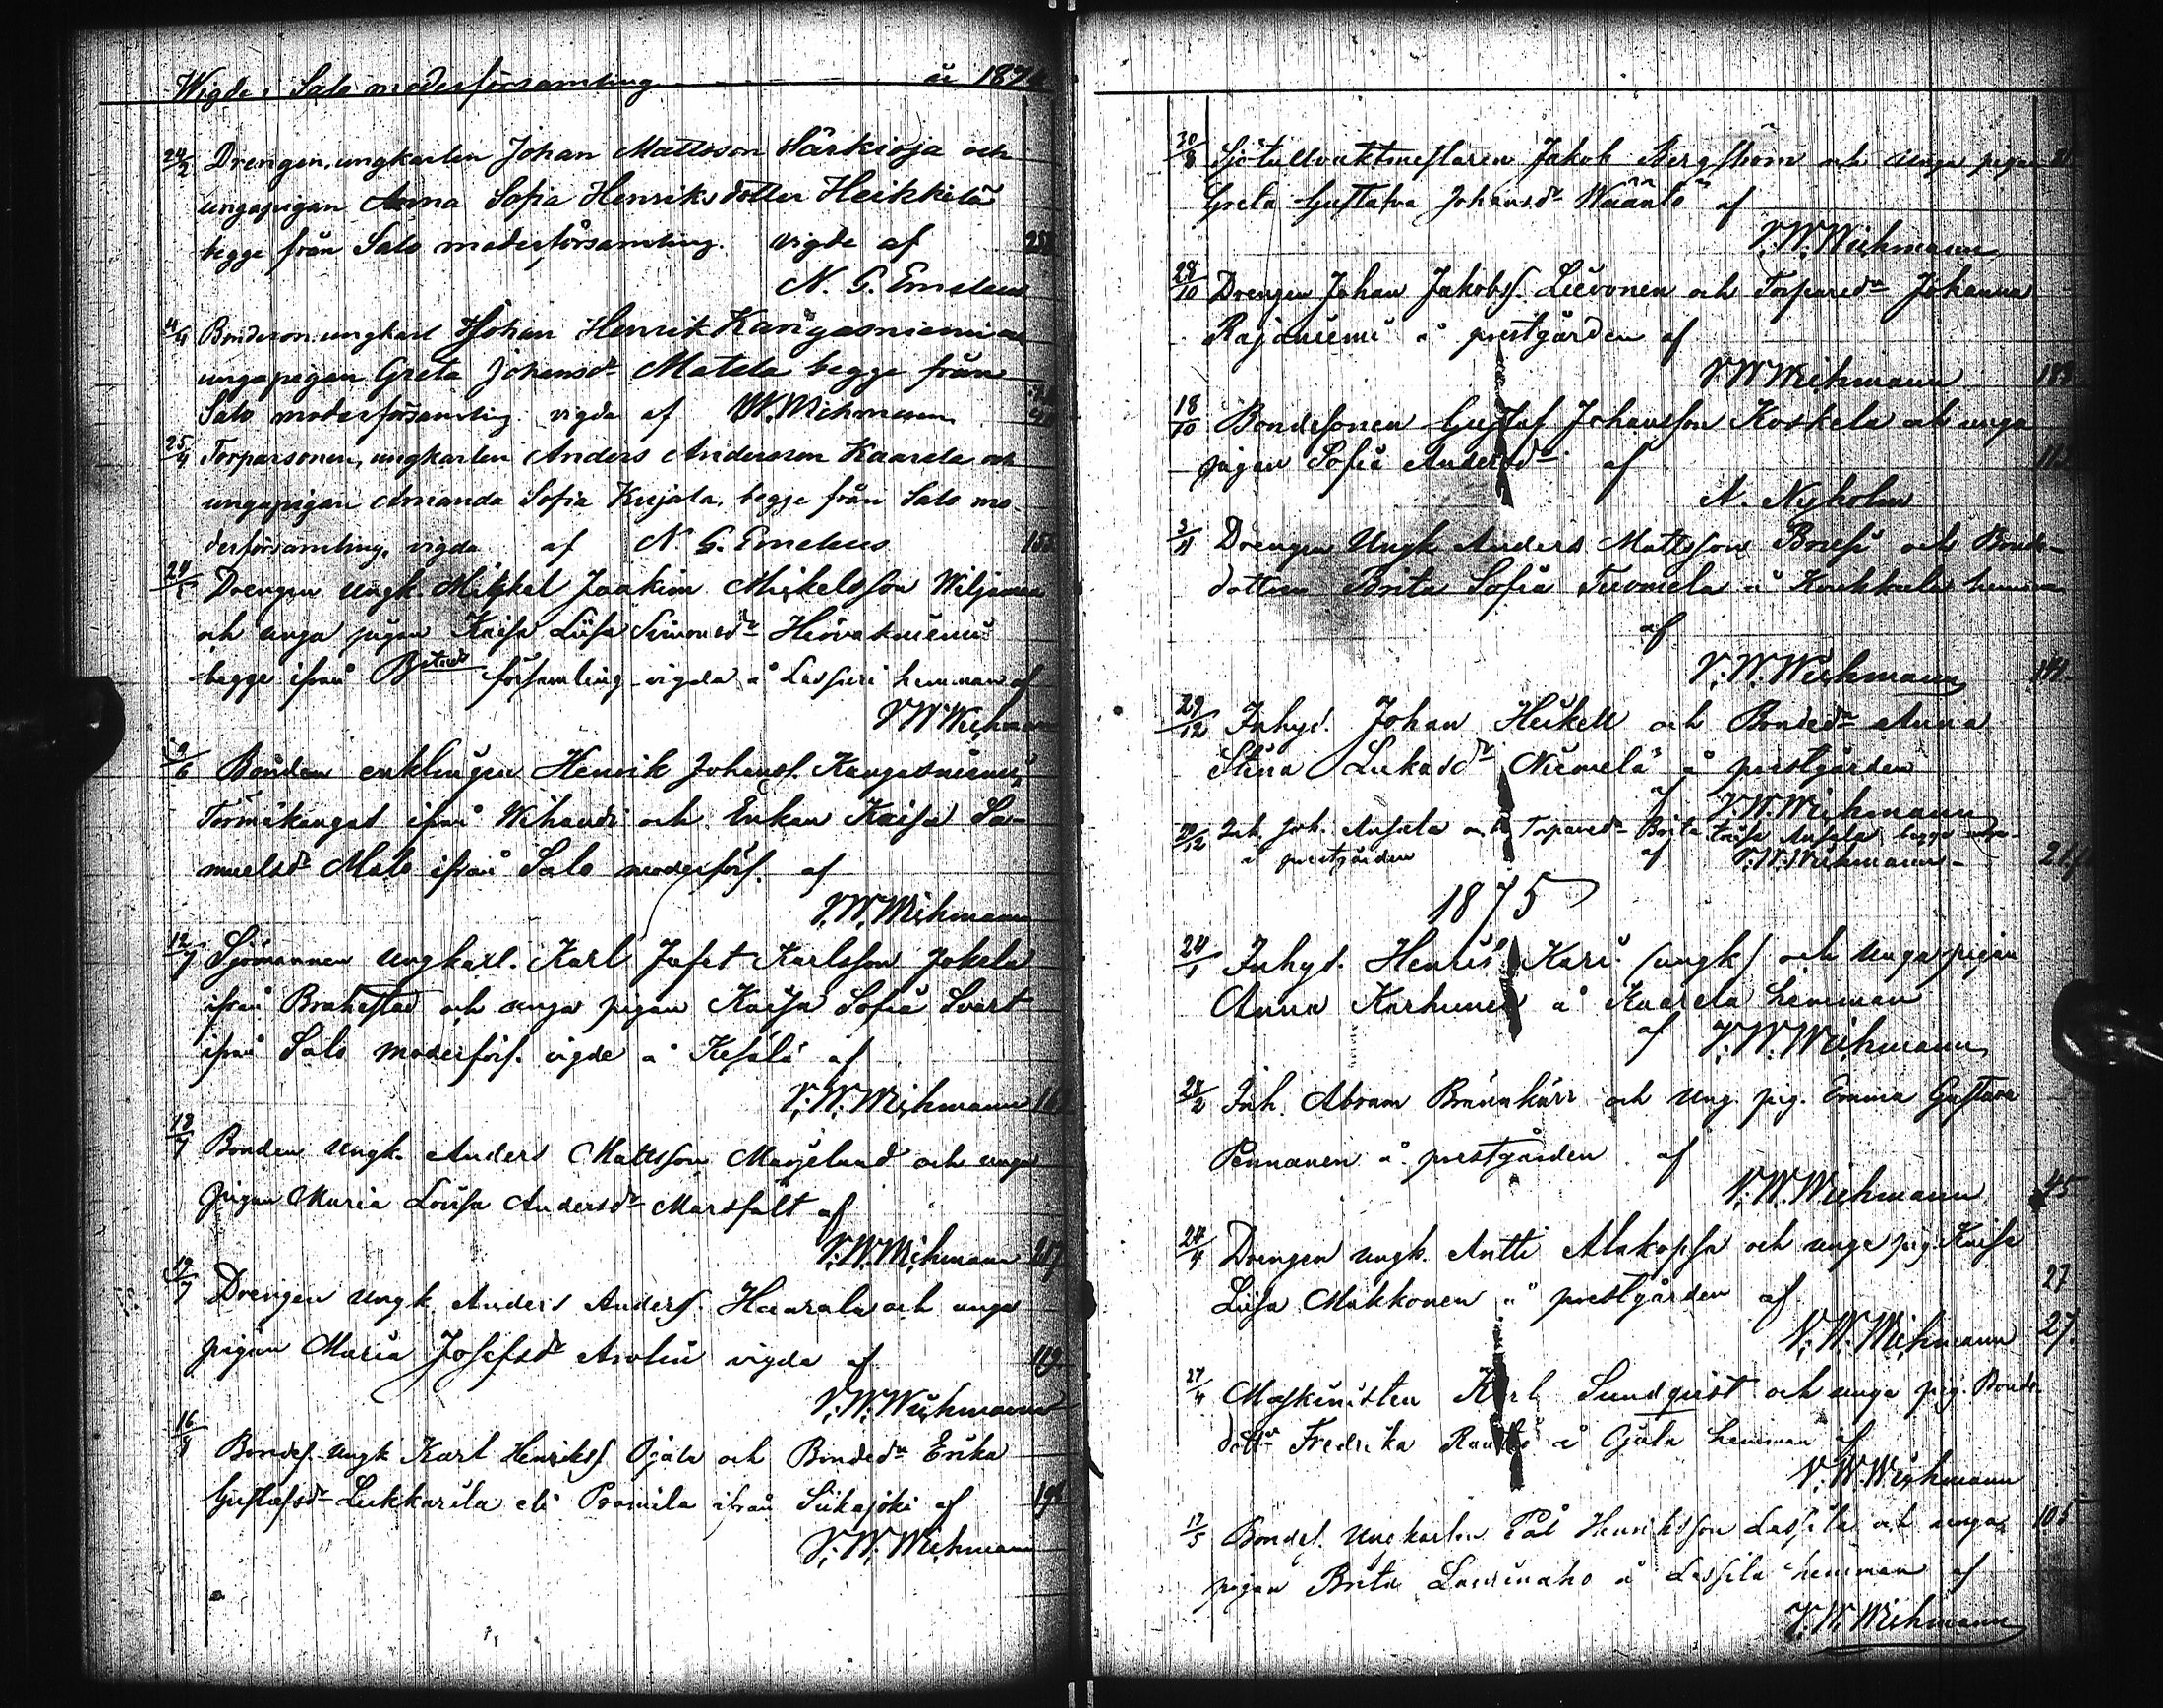 Wigde i Salo moderförsamling år 1874
24/2 Drengen, ungkarlen Johan Mattsson Särkioja och
ungapigan Anna Sofia Henriksdotter Heikkilä
begge från Salo moderförsamling. vigde af
N. G. Emeleus
Bondeson ungkarl Johan Henrik Kangasniemi och
ungapigan Greta Johansdr Matela begge från
Salo moderförsamling vigde af V.W. Wichmann
25/4 Torparsonen, ungkarlen Anders Andersson Kaarela och
ungapigan Amanda Sofia Kujala, begge från Salo mo-
derförsamling, vigda af N. G. Emeleus
Drengen Ungk. Mikkel Joakim Mikelsson Wiljanen
och unga pigan Kaisa Liisa Simonsdr Hirvasniemi
begge ifrån Bstad församling vigda å Lassuri hemman af
V W Wichmann
9/6 Bonden enklingen Henrik Johanss. Kangasniemi,
Törmäkangas ifrån Wihandi och Enkan Kaisa Sa-
muelsdr Malo ifrån Salo moderförs. af
V.W. Wichmann
12/7 Sjömannen Ungkarl. Karl Jafet Karlsson Jokela
ifrån Brahestad och unga pigan Kaisa Sofia Svart
ifrån Salo moderförs. vigde å Kesälä af
V. W. Wichmann
Bonden Ungk. Anders Mattsson Marjelund och unga
pigan Maria Lovisa Andersdr Marsfält af
V. W. Wichmann 257
19/7 Drengen Ungk. Anders Anders. Haarala och unga
pigan Maria Josefsdr Arvlin vigda af 119
V. W. Wichmann
16/8 Bondes. Ungk Karl Henrikss. Ojala och Bondedr Erika
Gustafsdr Lukkarila eli Pramila ifrån Siikajoki af
V. W. Wichmann
30/8 Sjötullvaktmestaren Jakob Bergström och unga pigan
Greta Gustafva Johansdr Wäänto af
V. W. Wichmann
28/10 Drengen Johan Jakobss. Lievonen och Torparedr Johanna
Rajaniemi å prestgården af
V W Wichmann
18/10 Bondesonen Gustaf Johansson Koskela och unga
pigan Sofia Andersdr af
A. Nyholm
Drengen Ungk Anders Mattsson och Bonde-
dottren Brita Sofia Tuomela å Koukkula hemman
af
V. W. Wichmann
29/12 Inhys. Johan Heikell och Bondedr Anna
Stina Lukasdr Niemelä å prestgården
af V. W. Wichmann
Inh. Joh. Ansala och Torparedr Brita Ansala begge
å prestgården af V. W. Wichmann
1875
24/1 Inhys. Henrik Kari (ungk) och Unga pigan
Anna Karhunen å Kaarela hemman
af V. W. Wichmann
28/2 Inh. Abram Brännkärr och Ung. pig. Emma Gustava
Pennanen å prestgården af
V. W. Wichmann 45
24/4 Drengen Ungk. Antti Alakopsa och unga pig. Kaisa
Liisa Makkonen å prestgården af 27
V. W. Wichmann 27.
27/4 Maskinisten Karl Sundqvist och unga pig. Bonde
dottr Fredrika å Ojala hemman af
V. W. Wichmann
17/5 Bondes. Ungkarlen Pål Henriksson Lassila och unga 105
pigan Brita Lamminaho å Lassila hemman af
V. W. Wichmann